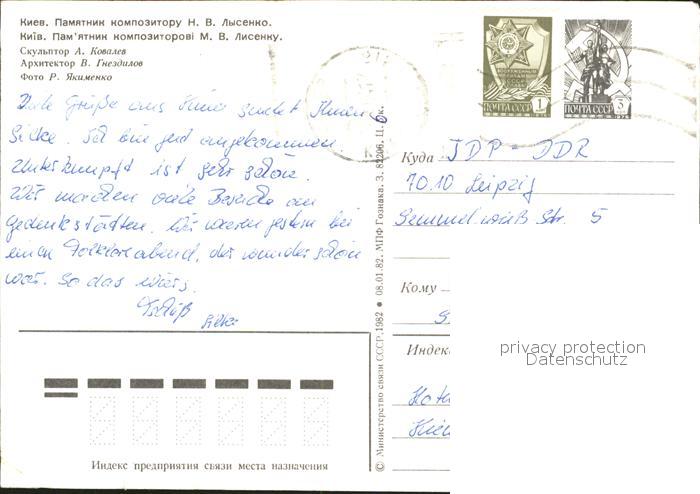 Киев. Памятник композитору Н. В. Лысенко.
Київ. Пам'ятник композиторові М. В. Лисенку.
Скульптор А. Ковалев
Архитектор В. Гнездилов
Фото Р. Якименко
Viele Grüße aus Kiew sendet Ihnen
Silke. Ich bin gut angekommen.
Unterkunft ist sehr schön.
Wir machen viele Besuche an
Gedenkstätten. Wir waren gestern bei
einem Folkloreabend, der wunderschön
war. So das wärs.
Tschüß
Silke
ПОЧТА СССР 1
ПОЧТА СССР 3
Куда JDP - DDR
7010 Leipzig
Semmelweiß Str. 5
Кому
Индекс
Hot
Kie
privacy protection
Datenschutz
Индекс предприятия связи места назначения
© Министерство связи СССР, 1982 • 08.01.82. МПФ Гознака. З. 82206. Ц. к.